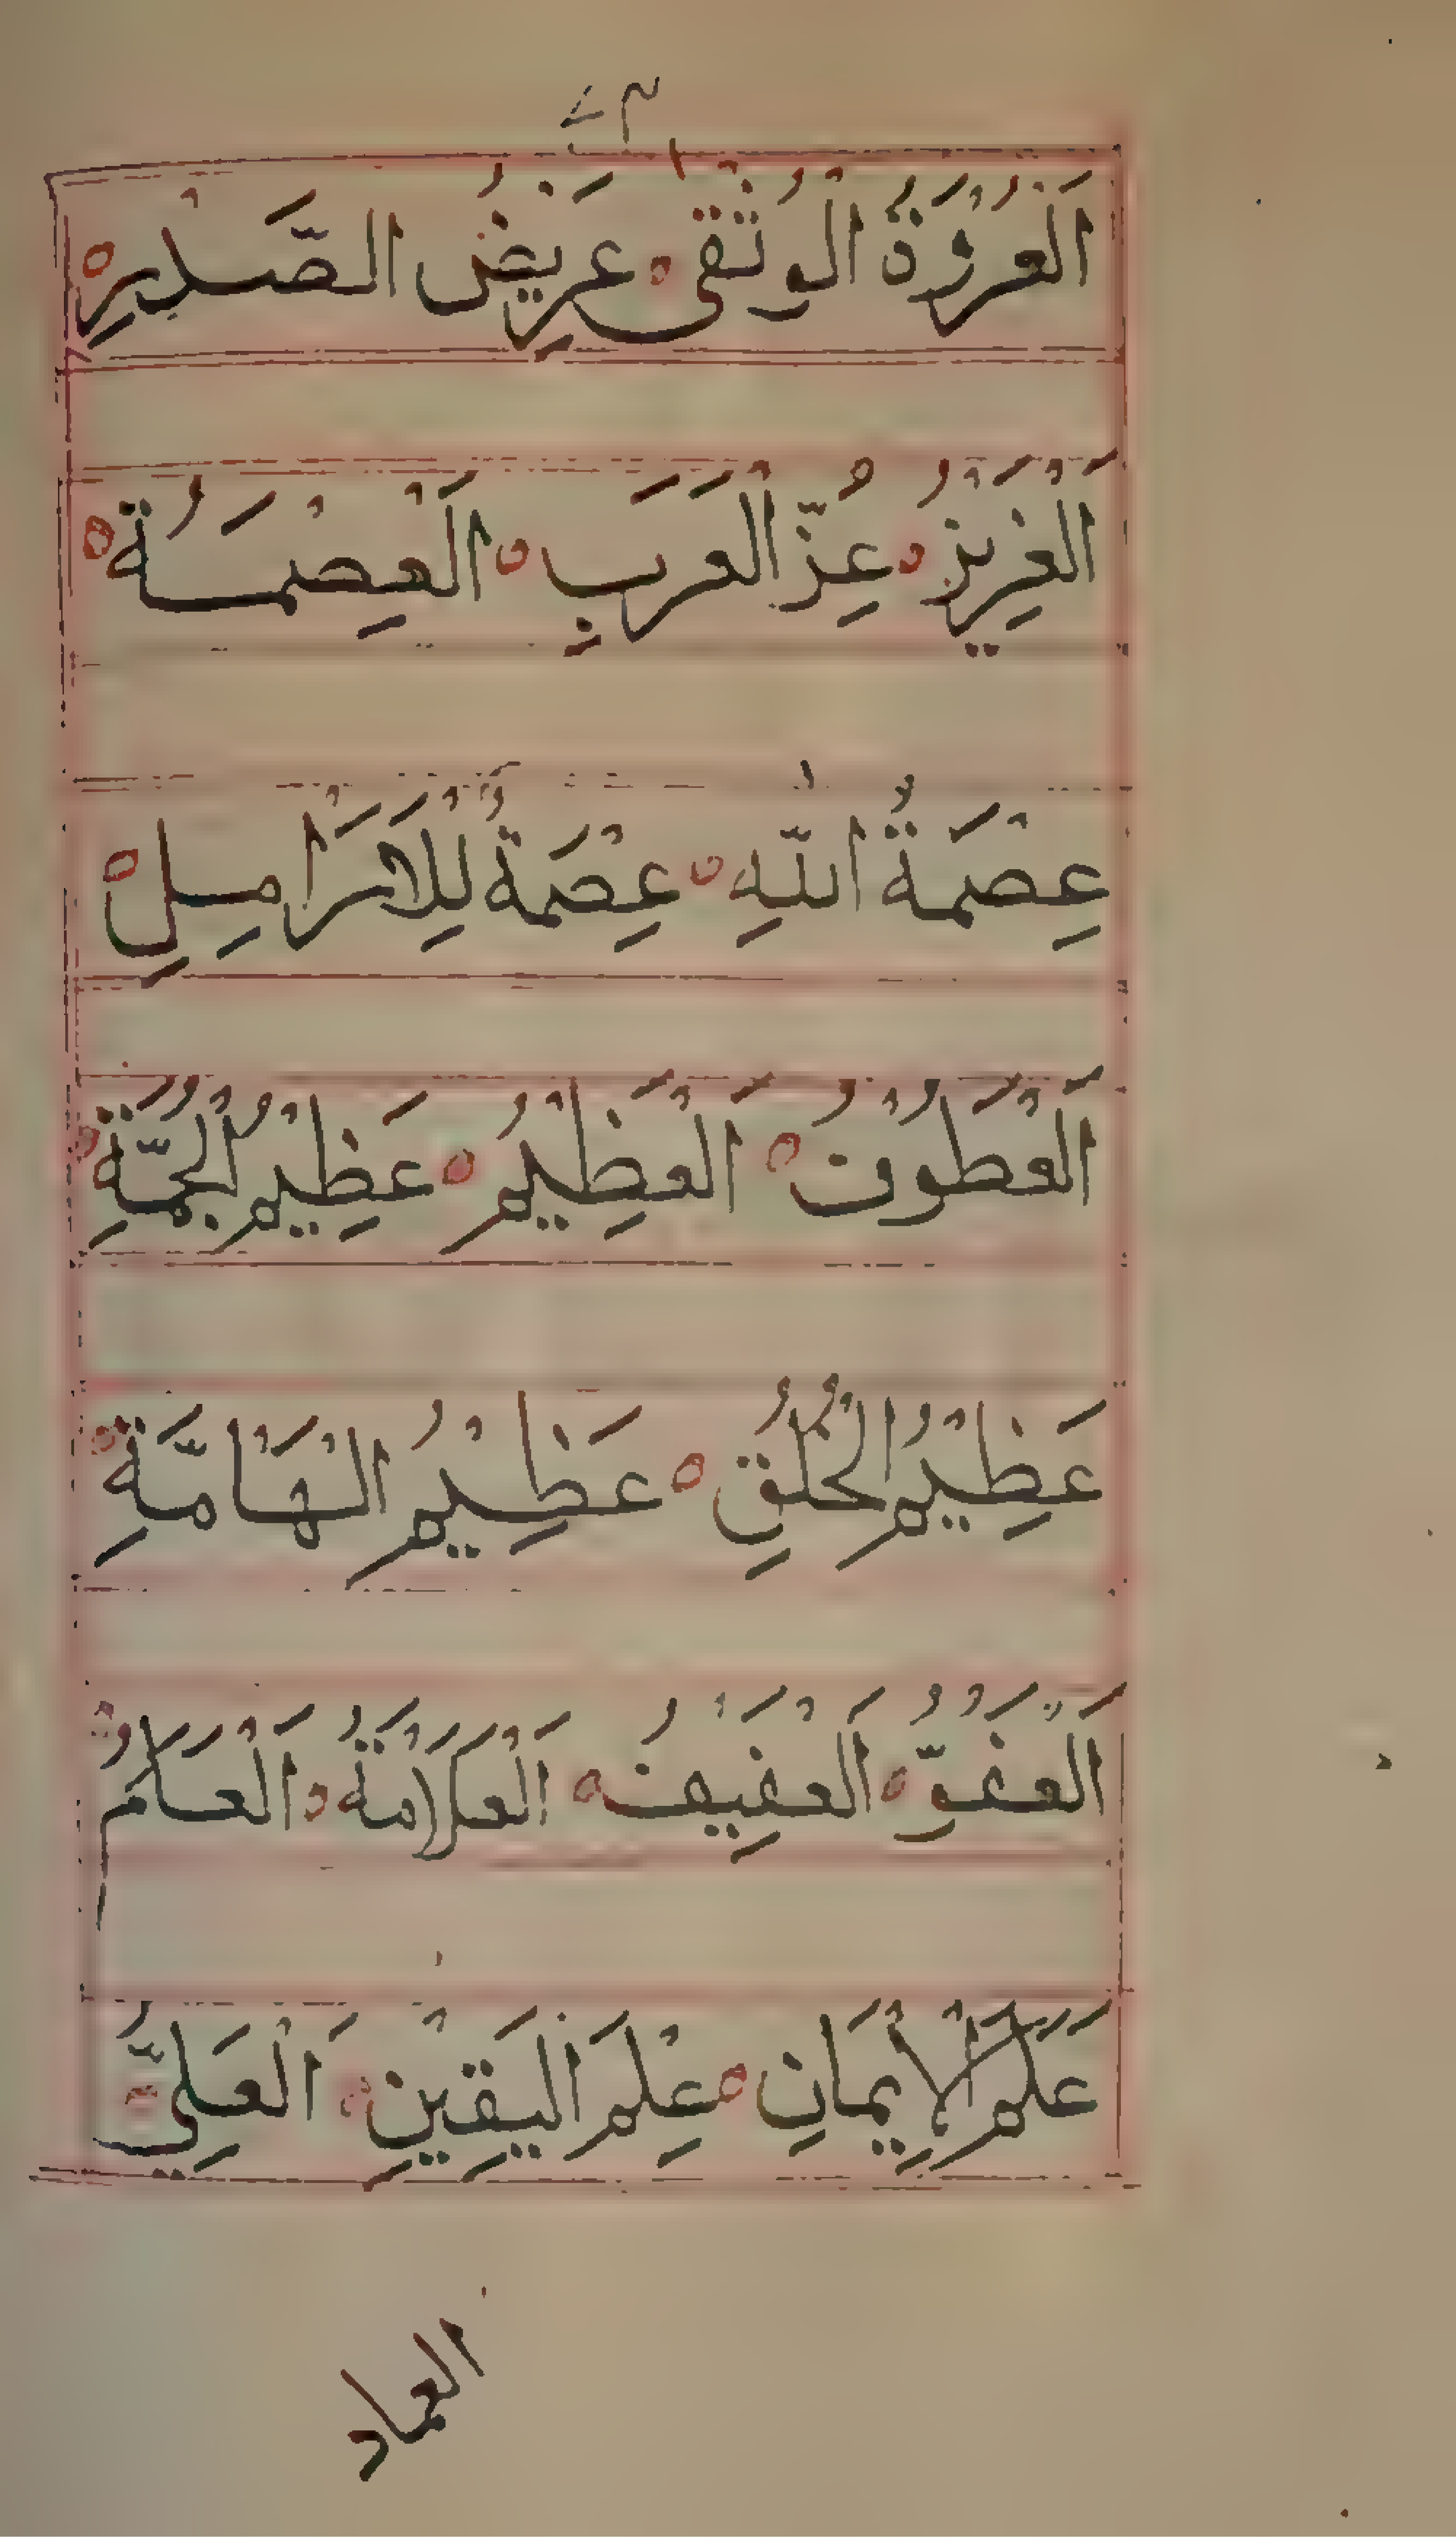 اَلْعُرْوَةُ الْوُثْقَى عَرِيْضُ الصَّدْرِ
اَلْعَزِيْزُ عِزُّ الْعَرَبِ اَلْعِصْمَةُ
عِصْمَةُ اللّٰهِ عِصْمَةٌ لِلْاَرَامِلِ
اَلْعَطُوْفُ اَلْعَظِيْمُ عَظِيْمُ الْجُمَّةِ
عَظِيْمُ الْخُلُقِ عَظِيْمُ الْهَامَّةِ
اَلْعَفُوُّ اَلْعَفِيْفُ اَلْعَلَامَةُ اَلْعَلَمُ
عَلَمُ الْاِيْمَانِ عِلْمَ الْيَقِيْنِ اَلْعَلِيُّ
العماد